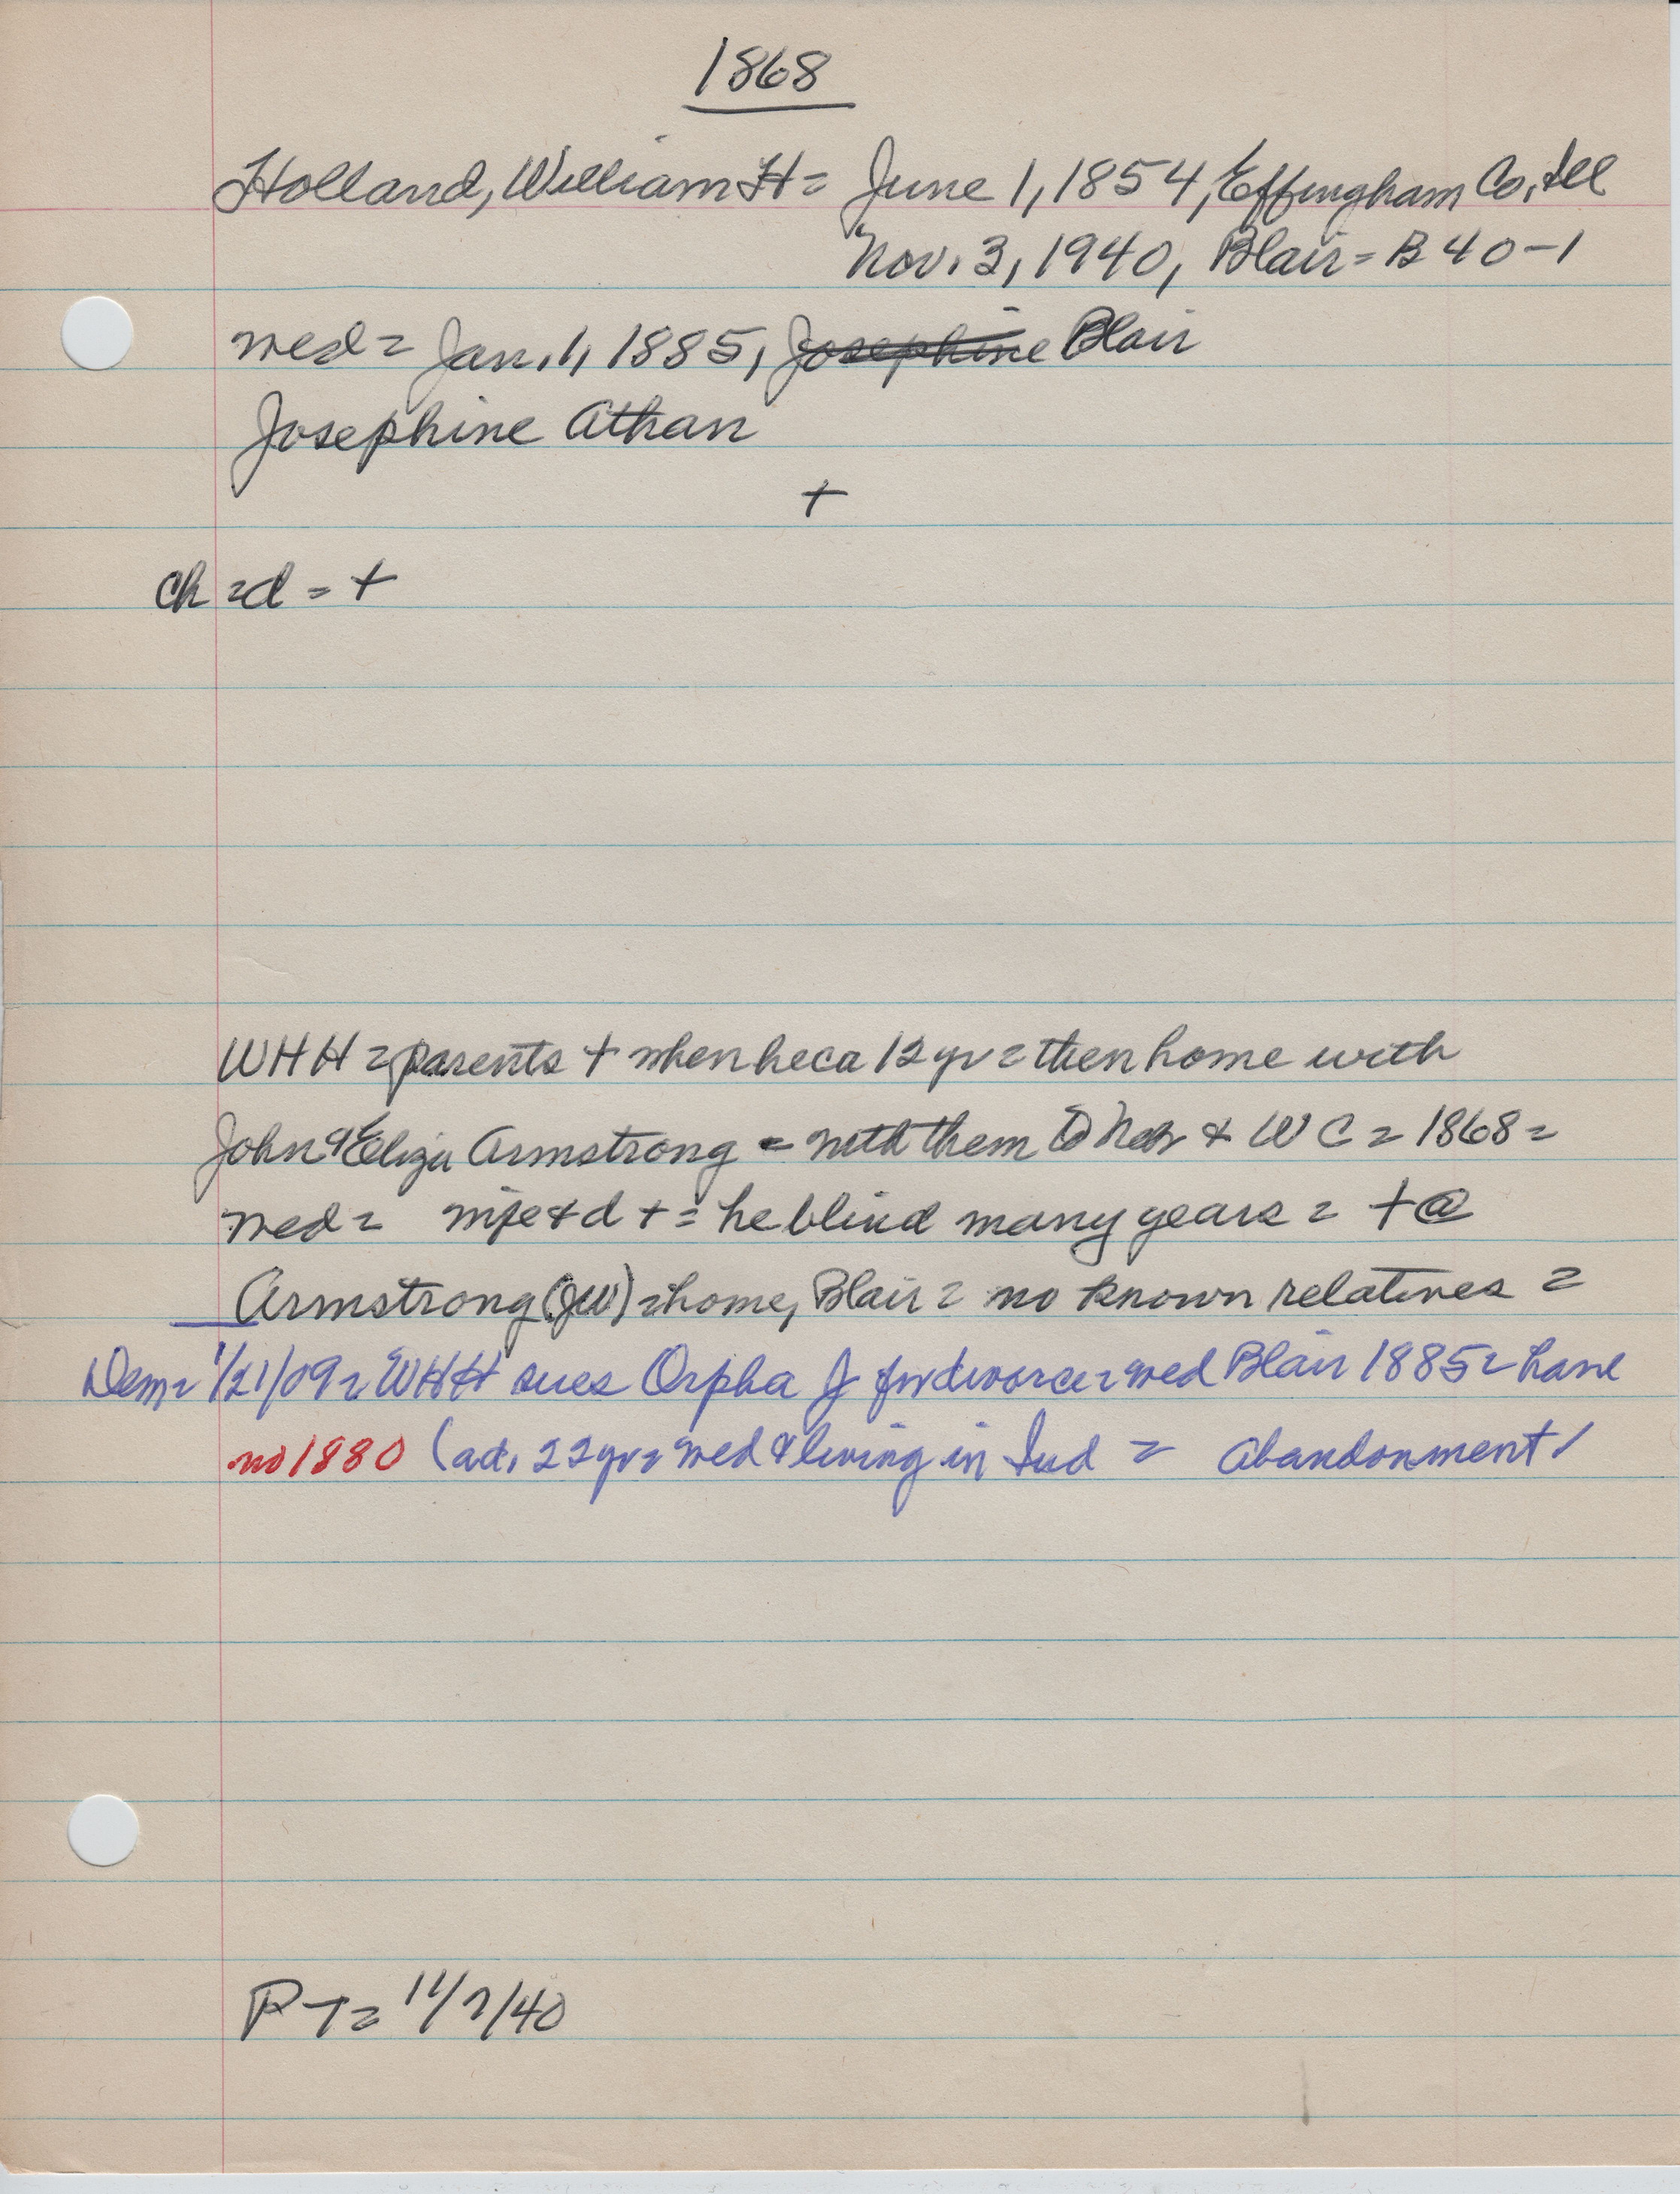 1868
Holland, William H = June 1, 1854, Effingham Co, Ill
Nov. 3, 1940, Blair = B 40-1
wed = Jan. 1, 1885, Josephine Blair
Josephine Athan
+
ch = d = +
WHH = parents + when he ca 12 yr = then home with
John & Eliza Armstrong = with them to Neb & WC = 1868 =
wed = wife & d + = he blind many years = + @
Armstrong (JW) = home, Blair = no known relatives =
Dem = 1/21/09 = WHH sues Orpha J for divorce = wed Blair 1885 = have
no 1880 (ad. 22 yr = wed & living in Ind = abandonment /
PT = 11/7/40